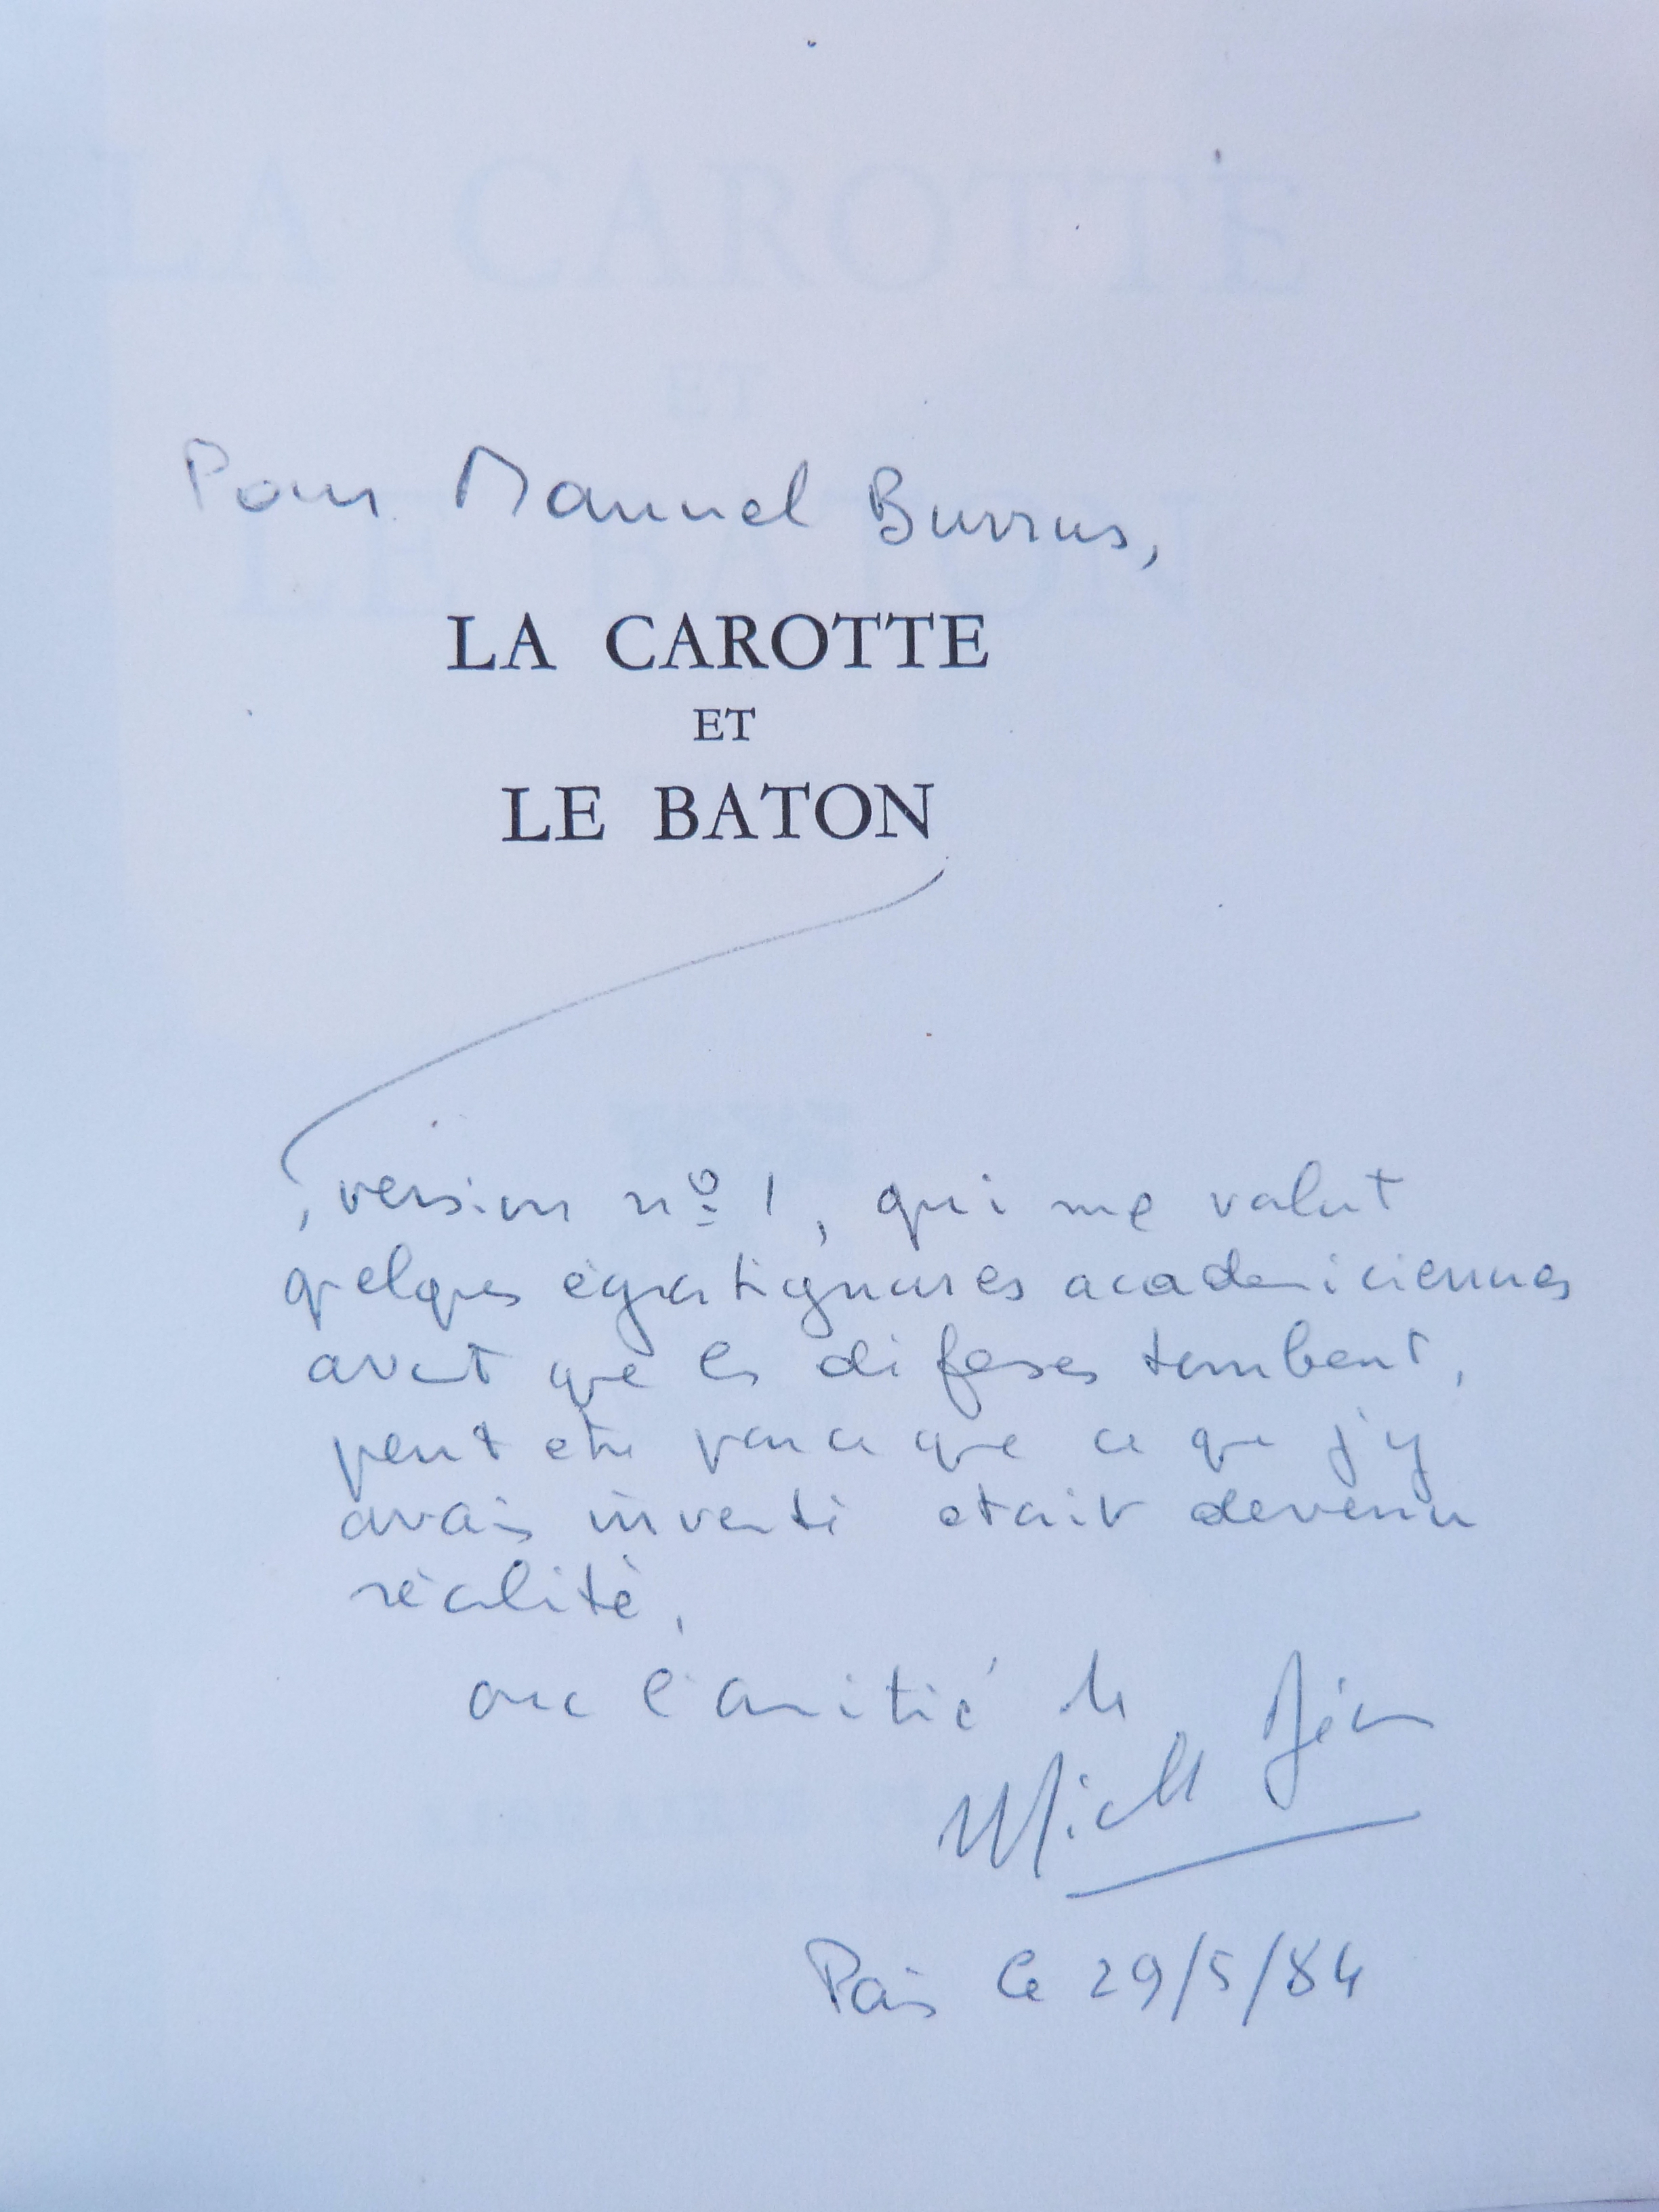 Pour Manuel Burrus,
LA CAROTTE
ET
LE BATON
, version nº 1, qui me valut
quelques égratignures academiciennes
avant que les défenses tombent,
peut etre parce que ce que j'y
avais inventé etait devenu
réalité,
avec l'amitié de
Michel Déon
Paris le 29/5/84